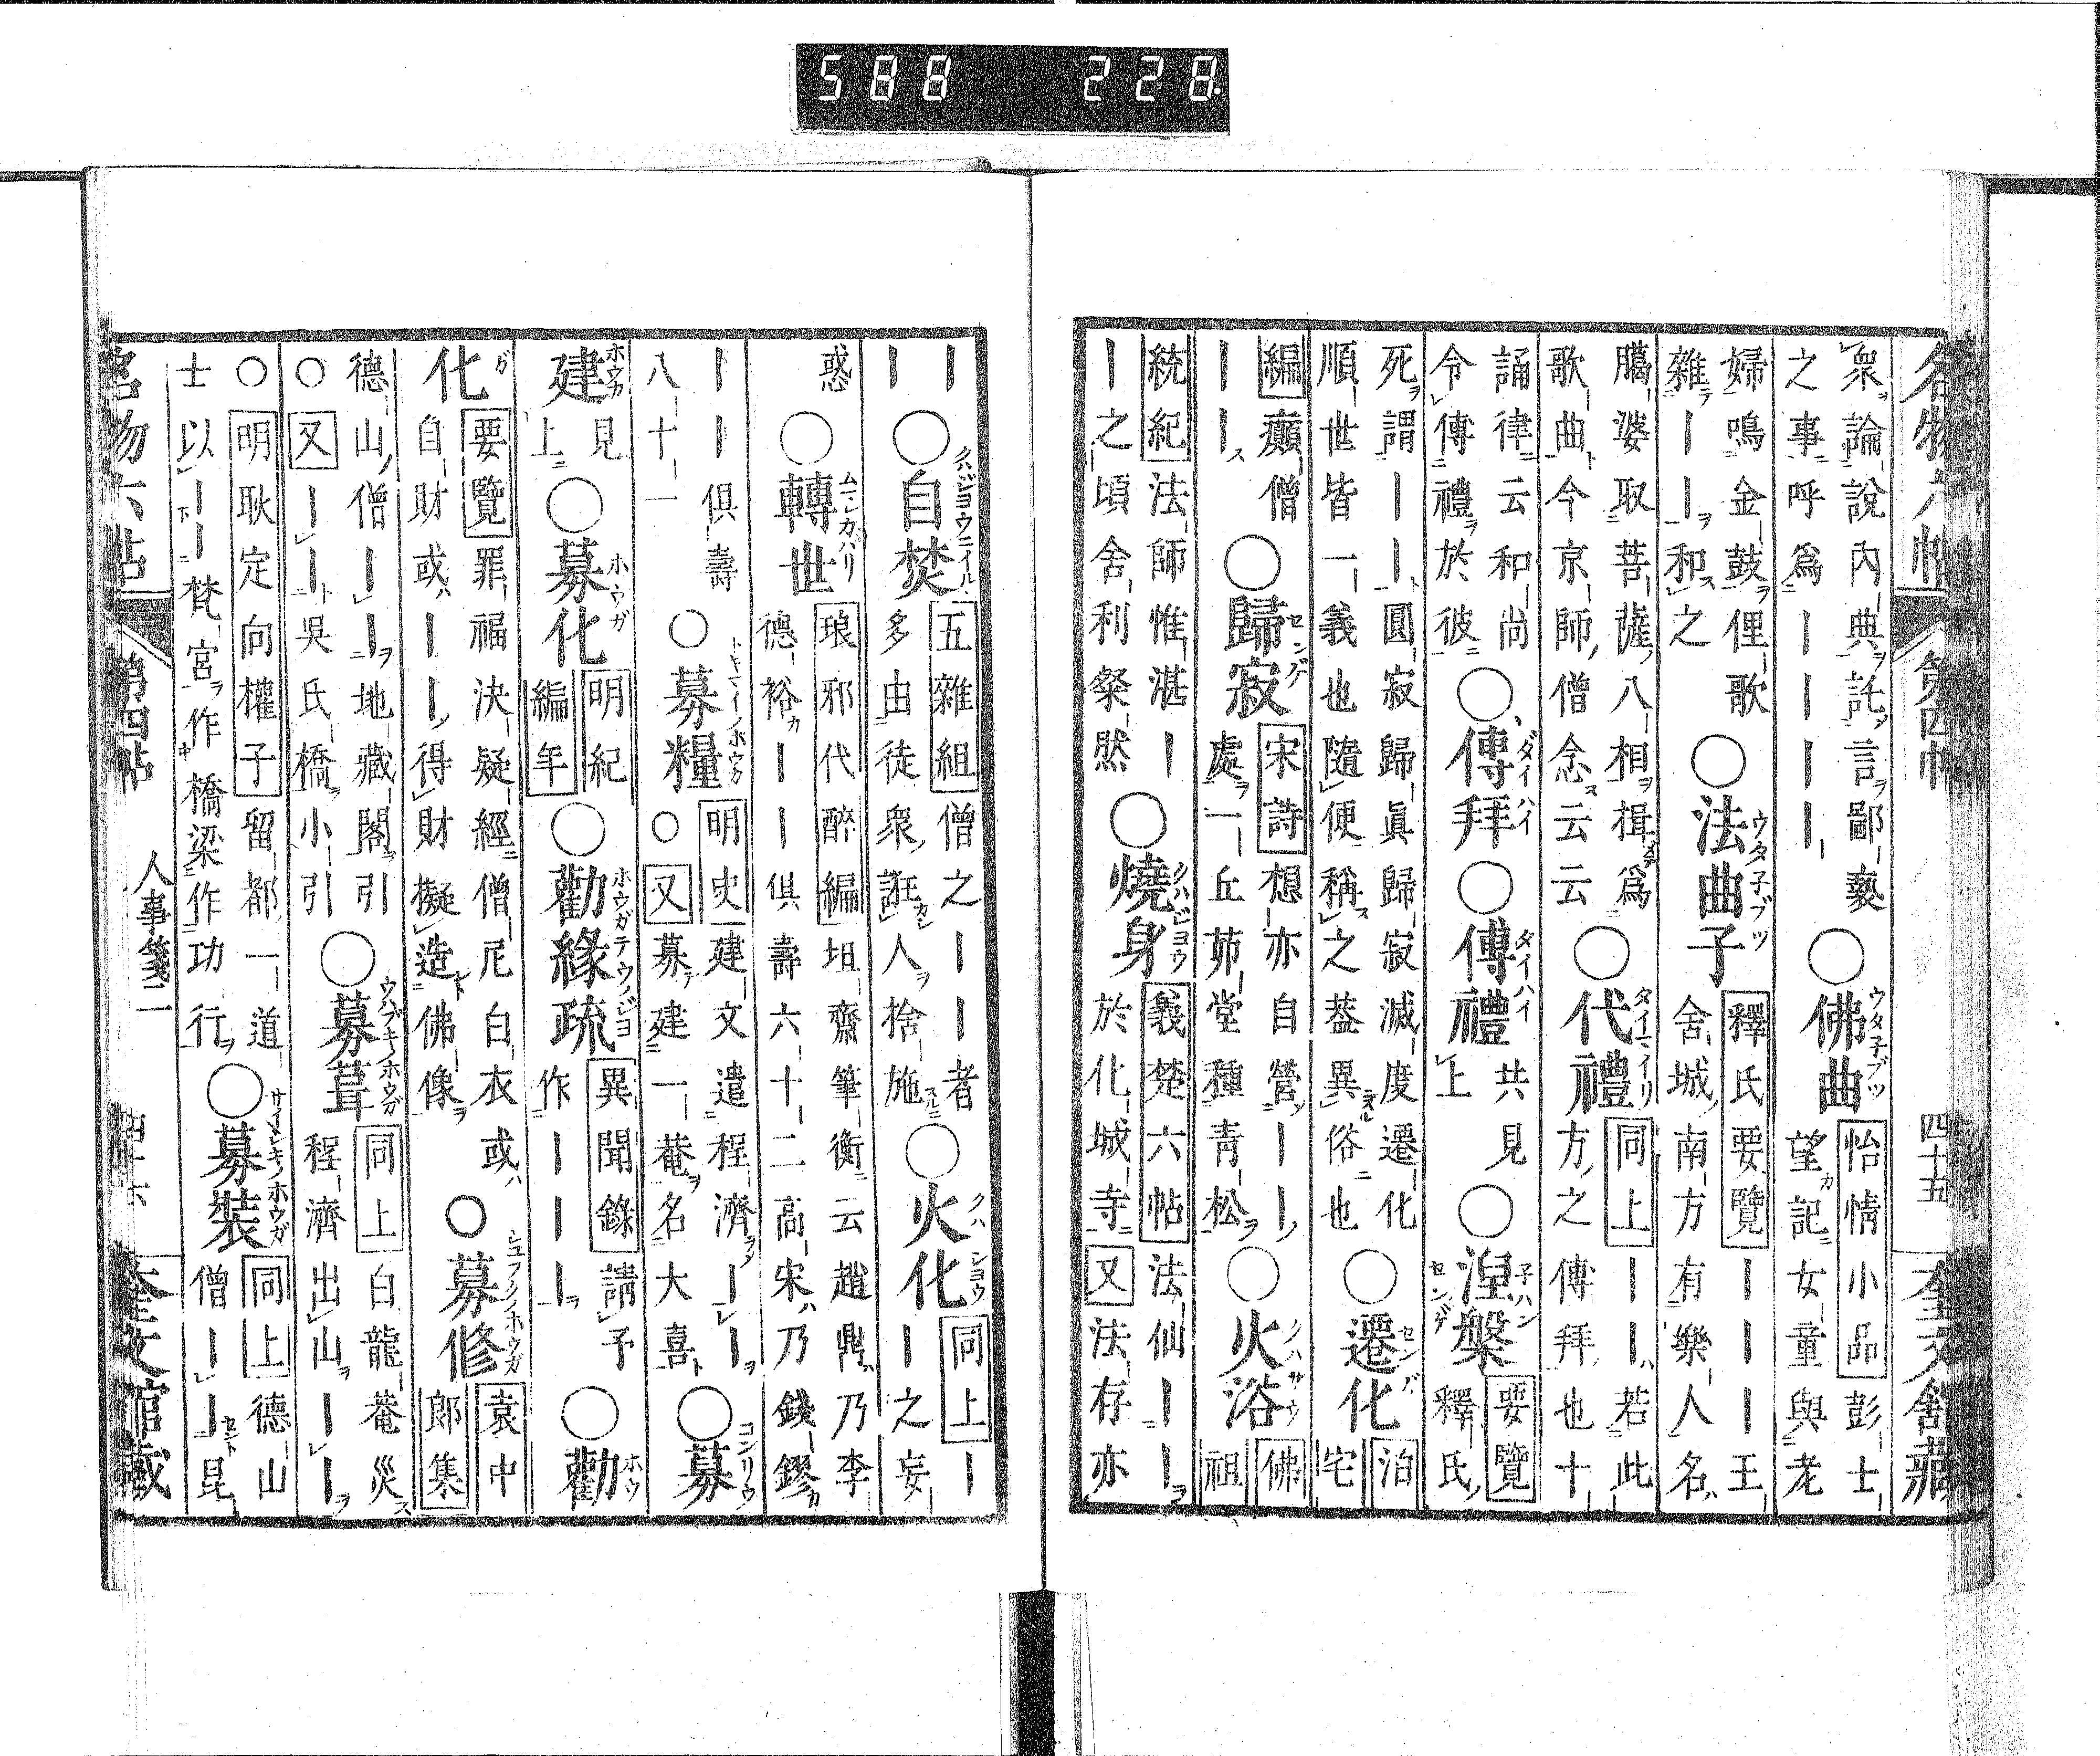 588 228
名物六帖 第四帖 四十五 奎文館藏
衆論説內典託言鄙褻○佛曲怡情小品彭士
之事呼爲｜｜｜｜望記女童與老
婦鳴金鼓俚歌○法曲子釋氏要覽｜｜｜王
雜｜｜和之舍城南方有樂人名
臈婆取菩薩八相揖爲○代禮同上｜｜若此
歌曲今京師僧念云云方之傳拜也十
誦律云和尚○傳拜○傳禮共見○涅槃要覽
令傳禮於彼上釋氏
死謂｜｜圓寂歸眞歸寂滅度遷化○遷化泊
順世皆一義也隨便稱之葢異俗也宅
編癲僧○歸寂宋詩想亦自營｜｜○火浴佛
｜｜處一丘茆堂種青松祖
統紀法師惟湛｜○燒身義楚六帖法仙｜｜
｜之頃舍利粲然於化城寺又法存亦
｜○自焚五雜組僧之｜｜者○火化同上｜
｜多由徒衆誑人捨施｜之妄
惑○轉世琅邪代醉編坦齋筆衡云趙鼎乃李
德裕｜｜俱壽六十二高宋乃錢鏐
｜｜俱壽○募糧明史建文遣程濟｜｜○募
八十一○又募建一菴名大喜
建見上○募化明紀編年○勸緣疏異聞錄請予作｜｜｜○勸
化要覽罪福決疑經僧尼白衣或○募修袁中
自財或｜｜得財擬造佛像郎集
德山僧｜｜地藏閣引○募葺同上白龍菴災
○又｜｜吳氏橋小引程濟出山｜｜
○明耿定向權子留都一道○募裝同上德山
士以｜｜梵宮作橋梁作功行僧｜｜昆
名物六帖 第四帖 人事箋二 四十六 奎文館藏